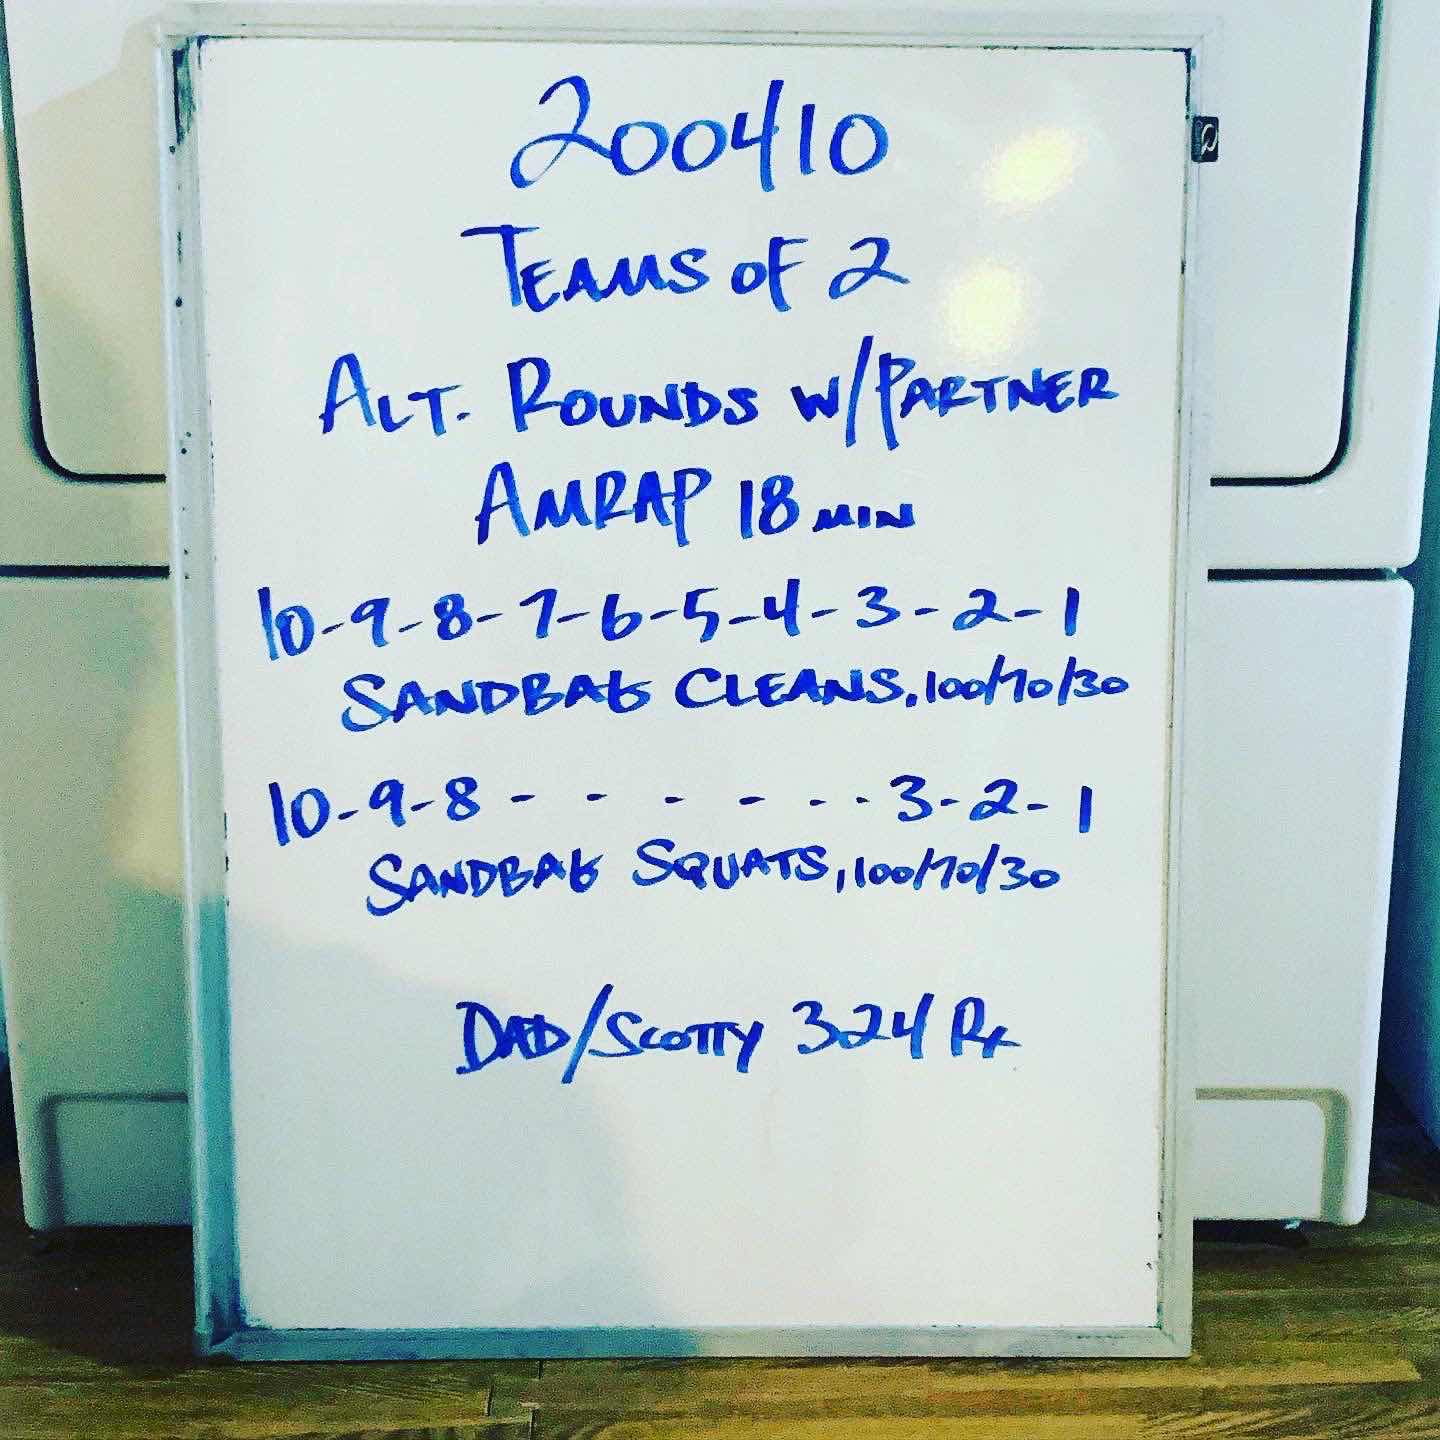 200410
TEAMS OF 2
ALT. ROUNDS W/PARTNER
AMRAP 18 MIN
10-9-8-7-6-5-4-3-2-1
SANDBAG CLEANS, 100/70/30
10-9-8 - - - - - - 3-2-1
SANDBAG SQUATS, 100/70/30
DAD/SCOTTY 324 Rx